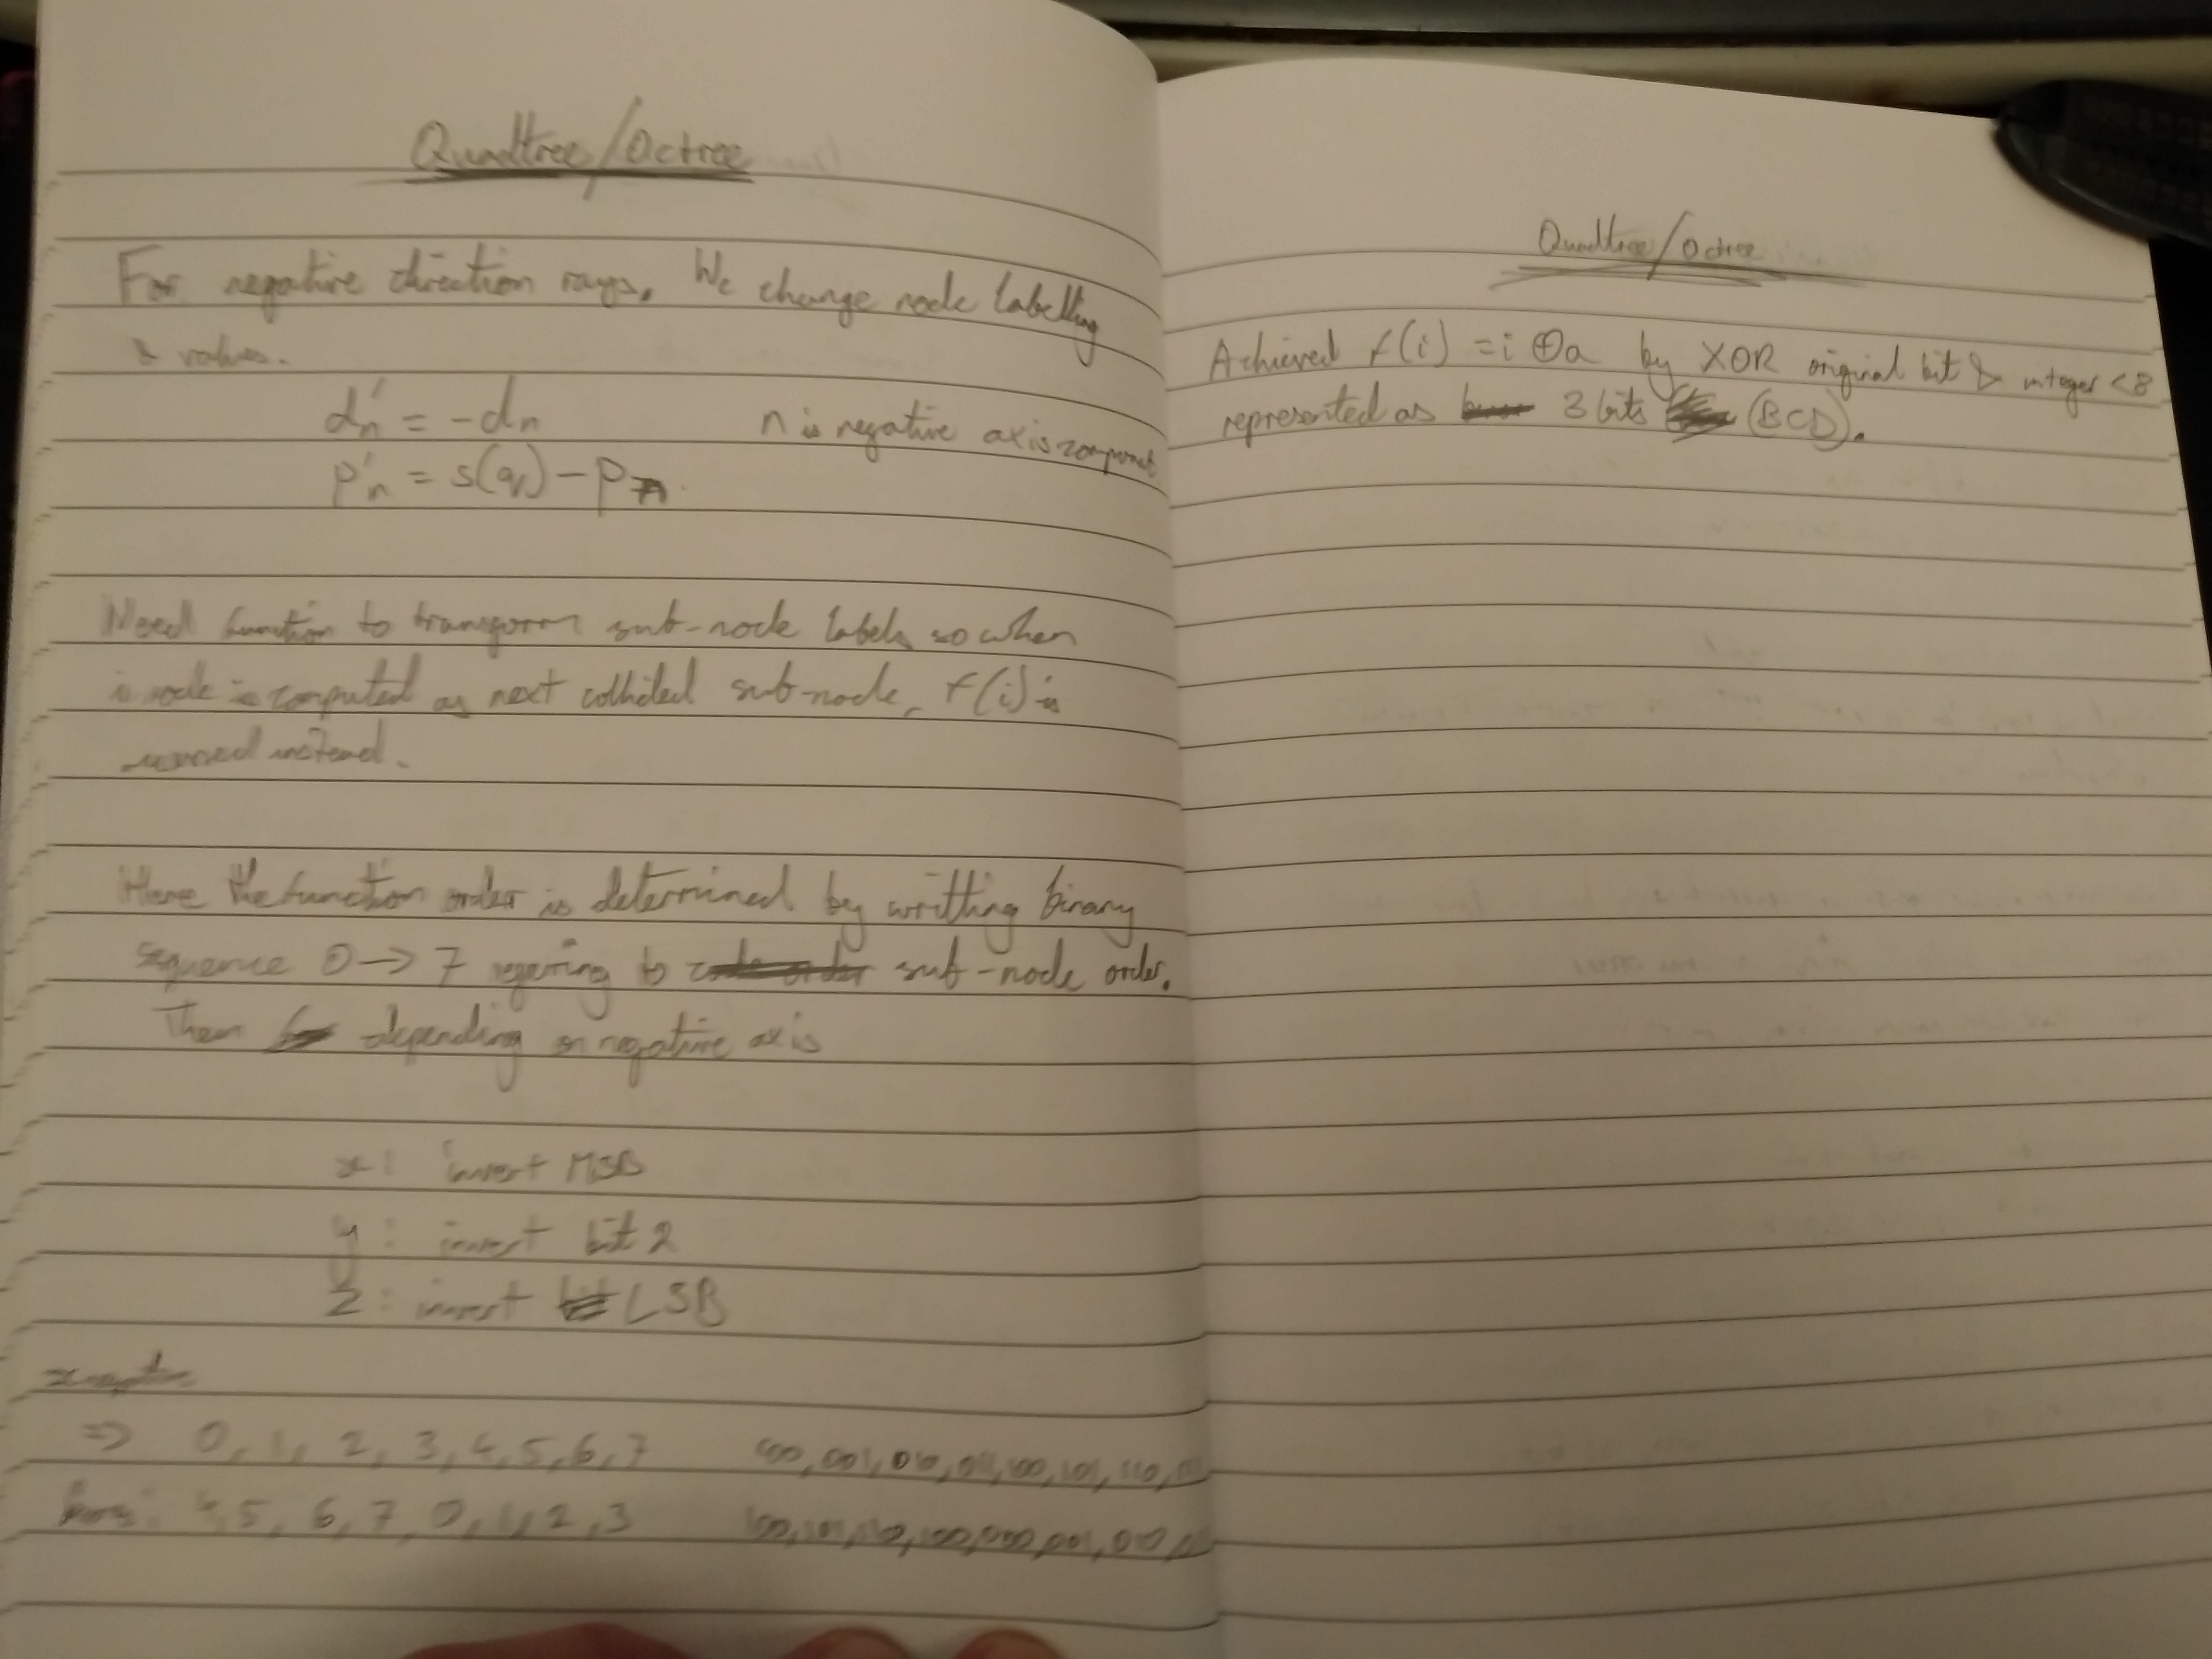 Quadtree/Octree
For negative direction rays. We change node labelling
& values.
d'n = -dn n is negative axis component
p'n = s(q) - pn
Need function to transform sub-node labels so when
i node is computed as next collided sub-node, f(i) is
instead.
Here the function order is determined by writting binary
sequence 0 → 7 to sub-node order.
Then depending on negative axis
x: invert MSB
y: invert bit 2
z: invert LSB
x negative
⇒ 0, 1, 2, 3, 4, 5, 6, 7 000, 001, 010, 011, 100, 101, 110,
4, 5, 6, 7, 0, 1, 2, 3 100, 101, 110, 100, 000, 001, 010,
Quadtree/Octree
Achieved f(i) = i ⊕ a by XOR original bit & integer < 8
represented as 3 bits (BCD).